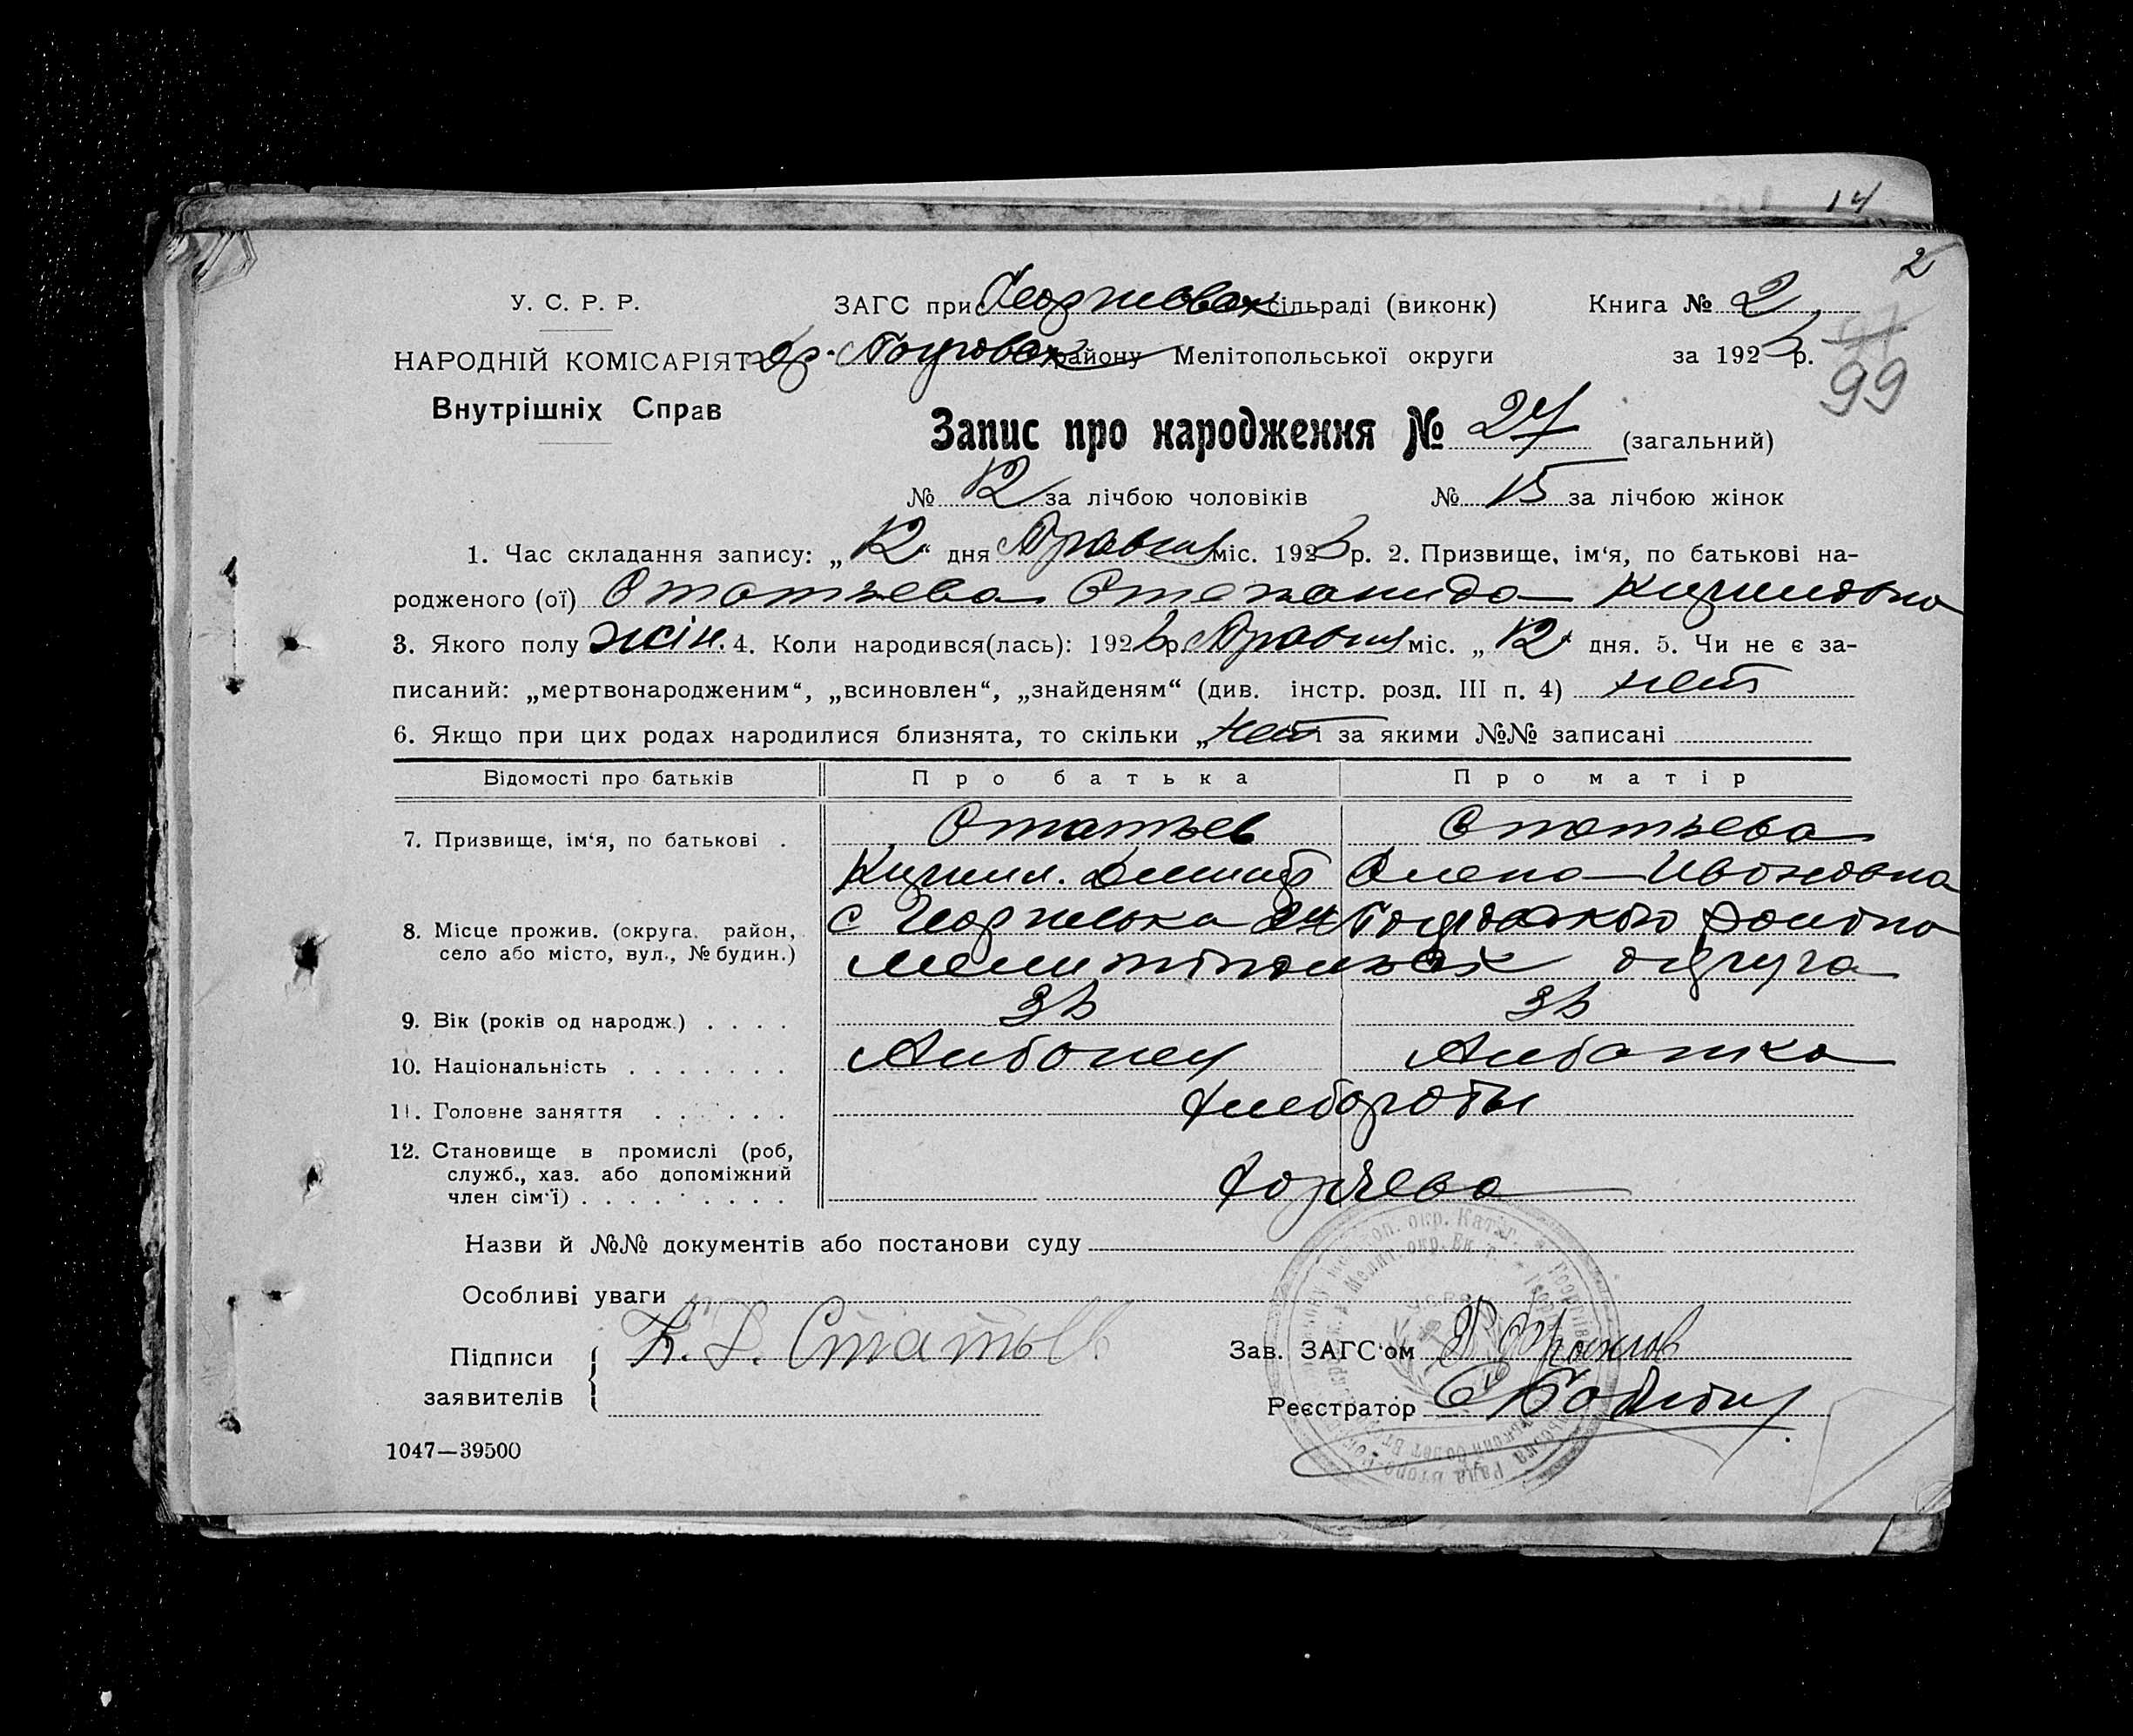 14
2
У. С. Р. Р.
ЗАГС при сільраді (виконк)
Книга № 2
НАРОДНІЙ КОМІСАРІЯТ
району Мелітопольської округи
за 192 р.
99
Внутрішніх Справ
Запис про народження № 27 (загальний)
№ 12 за лічбою чоловіків № 15 за лічбою жінок
1. Час складання запису: „12“ дня Травня міс. 192 р. 2. Призвище, ім‘я, по батькові на-
родженого (ої) Статьева Степанида Кириловна
3. Якого полу жін. 4. Коли народився(лась): 192 р. Травня міс. „12“ дня. 5. Чи не є за-
писаний: „мертвонародженим“, „всиновлен“, „знайденям“ (див. інстр. розд. III п. 4) нет
6. Якщо при цих родах народилися близнята, то скільки „нет за якими №№ записані
Відомості про батьків
Про батька
Про матір
7. Призвище, ім‘я, по батькові .
Статьев
Статьева
Кирил. Дмитр
Олена Ивановна
8. Місце прожив. (округа, район,
село або місто, вул., № будин.)
с
округа
9. Вік (років од народж.) . . . .
10. Національність . . . . . . .
Албанец
Албанка
11. Головне заняття . . . . . .
Хлебороты
12. Становище в промислі (роб,
служб., хаз. або допоміжний
член сім‘ї) . . . . . . . . .
Назви й №№ документів або постанови суду
Особливі уваги
Підписи
заявителів
К. Д. Статьев
Зав. ЗАГС‘ом
Реєстратор
1047—39500